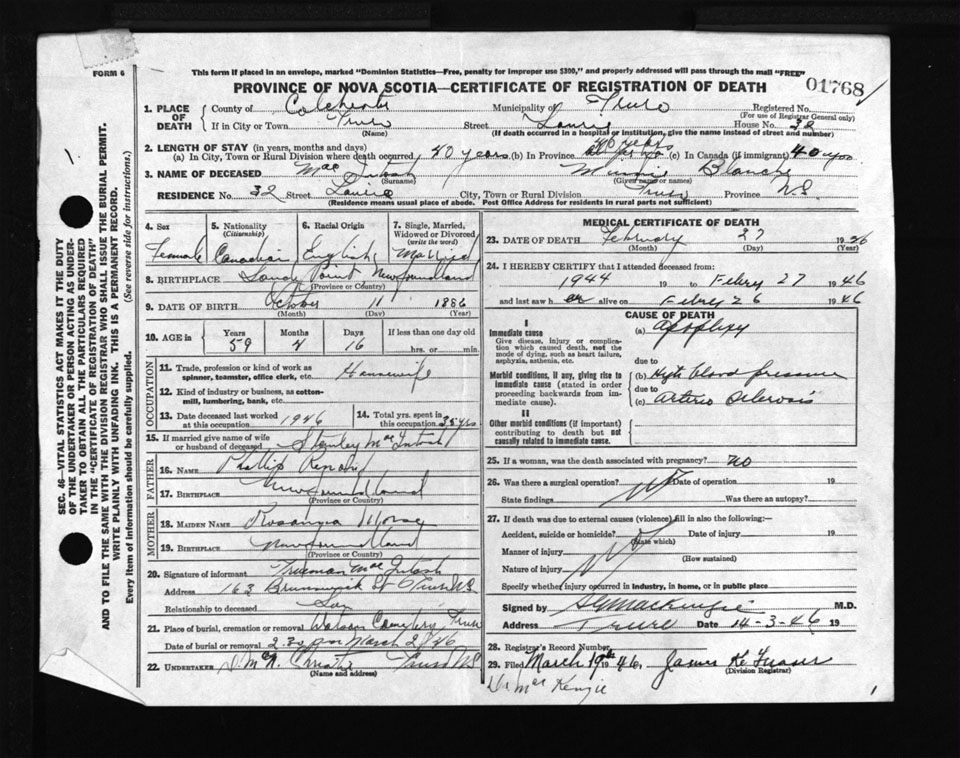 FORM 6
This form if placed in an envelope, marked "Dominion Statistics—Free, penalty for improper use $300," and properly addressed will pass through the mail "FREE"
PROVINCE OF NOVA SCOTIA—CERTIFICATE OF REGISTRATION OF DEATH
01768
1. PLACE OF DEATH County of Colchester Municipality of Truro Registered No.
(For use of Registrar General only)
If in City or Town Truro Street Louise House No. 32
(Name) (If death occurred in a hospital or institution, give the name instead of street and number)
2. LENGTH OF STAY (in years, months and days)
(a) In City, Town or Rural Division where death occurred 40 years (b) In Province 40 years (c) In Canada (if immigrant) 40 yrs
3. NAME OF DECEASED Mac Intosh Minnie Blanche
(Surname) (Given name or names)
RESIDENCE No. 32 Street Louise City, Town or Rural Division Truro Province N.S
(Residence means usual place of abode. Post Office Address for residents in rural parts not sufficient)
4. Sex
Female
5. Nationality
(Citizenship)
Canadian
6. Racial Origin
English
7. Single, Married, Widowed or Divorced
(write the word)
Married
8. BIRTHPLACE Sandy Point Newfoundland
(Province or Country)
9. DATE OF BIRTH October 11 1886
(Month) (Day) (Year)
10. AGE Years Months Days If less than one day old
59 4 16 hrs. or min.
OCCUPATION
11. Trade, profession or kind of work as spinner, teamster, office clerk, etc. Housewife
12. Kind of industry or business, as cotton-mill, lumbering, bank, etc.
13. Date deceased last worked at this occupation 1946
14. Total yrs. spent in this occupation 38 yrs
15. If married give name of wife or husband of deceased Stanley MacIntosh
FATHER
16. NAME Phillip
17. BIRTHPLACE Newfoundland
(Province or Country)
MOTHER
18. MAIDEN NAME
19. BIRTHPLACE Newfoundland
(Province or Country)
20. Signature of informant Freeman MacIntosh
Address 163 Brunswick St Truro N.S
Relationship to deceased Son
21. Place of burial, cremation or removal Cemetery Truro
Date of burial or removal March 2/46
22. UNDERTAKER Truro N.S
(Name and address)
MEDICAL CERTIFICATE OF DEATH
23. DATE OF DEATH February 27 1946
(Month) (Day)
24. I HEREBY CERTIFY that I attended deceased from:
1944 19 to Febry 27 1946
and last saw her alive on Febry 26 1946
CAUSE OF DEATH
I
Immediate cause
Give disease, injury or complication which caused death, not the mode of dying, such as heart failure, asphyxia, asthenia, etc.
(a) apoplexy
due to
Morbid conditions, if any, giving rise to immediate cause (stated in order proceeding backwards from immediate cause).
(b) High blood pressure
due to
(c) Arterio Sclerosis
II
Other morbid conditions (if important) contributing to death but not causally related to immediate cause.
25. If a woman, was the death associated with pregnancy? no
26. Was there a surgical operation? Date of operation 19
State findings Was there an autopsy?
27. If death was due to external causes (violence) fill in also the following:—
Accident, suicide or homicide? Date of injury 19
(State which)
Manner of injury
(How sustained)
Nature of injury
Specify whether injury occurred in industry, in home, or in public place
Signed by MacKenzie M.D.
Address Truro Date 14-3-46 19
28. Registrar's Record Number
29. Filed March 19th 1946, James K Fraser
(Division Registrar)
Dr Mac Kenzie
1
SEC. 46—VITAL STATISTICS ACT MAKES IT THE DUTY OF THE UNDERTAKER OR PERSON ACTING AS UNDERTAKER TO OBTAIN ALL THE PARTICULARS REQUIRED IN THE "CERTIFICATE OF REGISTRATION OF DEATH" AND TO FILE THE SAME WITH THE DIVISION REGISTRAR WHO SHALL ISSUE THE BURIAL PERMIT.
WRITE PLAINLY WITH UNFADING INK. THIS IS A PERMANENT RECORD.
Every item of information should be carefully supplied. (See reverse side for instructions).